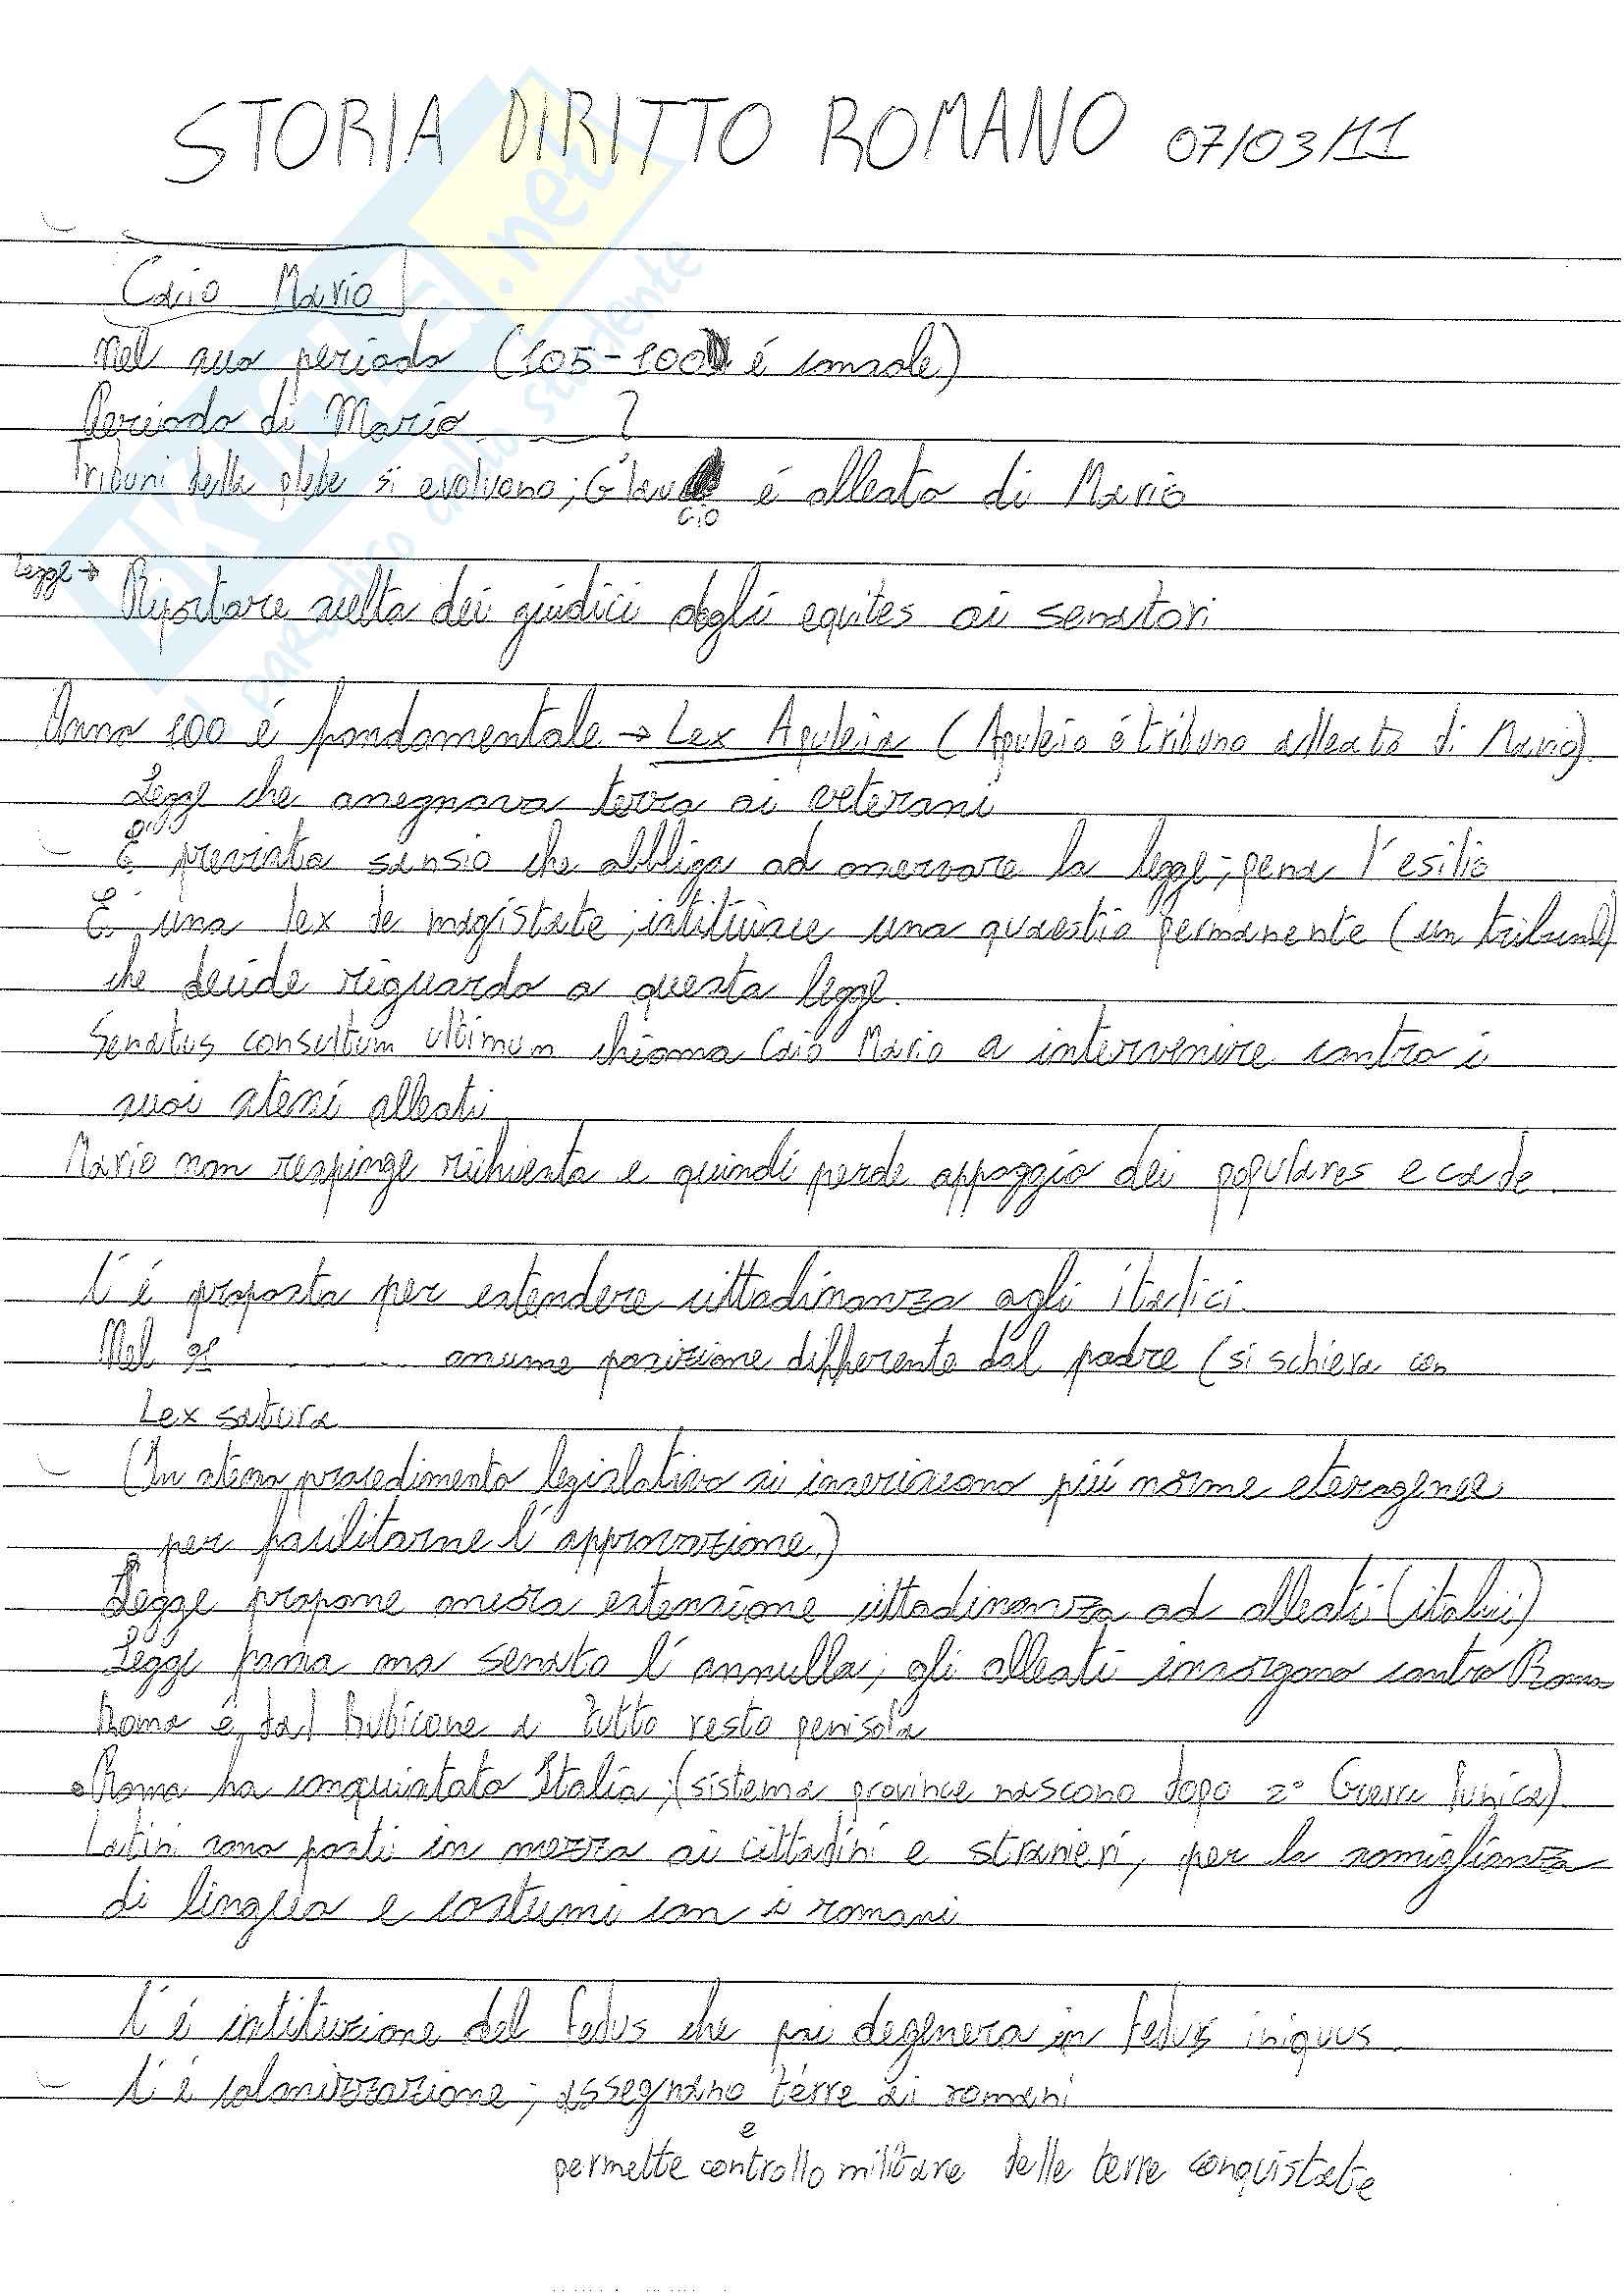 STORIA DIRITTO ROMANO 07/03/11
Caio Mario
Nel suo periodo (105-100 é console)
Periodo di Mario ?
Tribuni della plebe si evolvono; Glaucio é alleato di Mario
Legge → Riportare scelta dei giudici degli equites ai senatori
Anno 100 é fondamentale → Lex Apuleia (Apuleio é tribuno alleato di Mario)
Legge che assegnava terra ai veterani
É prevista sansio che obbliga ad osservare la legge; pena l'esilio
É una lex de magistate; istituisce una quaestio permanente (un tribunale)
che decide riguardo a questa legge.
Senatus consultum ultimum chiama Caio Mario a intervenire contro i
suoi stessi alleati
Mario non respinge richiesta e quindi perde appoggio dei populares e cade.
C'é proposta per estendere cittadinanza agli italici.
Nel 91 ........ assume posizione differente dal padre (si schiera con
Lex satura
(In stesso procedimento legislativo si inseriscono piú norme eterogenee
per facilitarne l'approvazione.)
Legge propone ancora estensione cittadinanza ad alleati (italici)
Legge passa ma senato l'annulla; gli alleati insorgono contro Roma
Roma é dal Rubicone a tutto resto penisola
Roma ha conquistato Italia; (sistema province nascono dopo 2° Guerra Punica)
Latini sono posti in mezzo ai cittadini e stranieri, per la somiglianza
di lingua e costumi con i romani
C'é istituzione del fedus che poi degenera in fedus iniquus.
C'é colonizzazione; assegnano terre ai romani
e
permette controllo militare delle terre conquistate